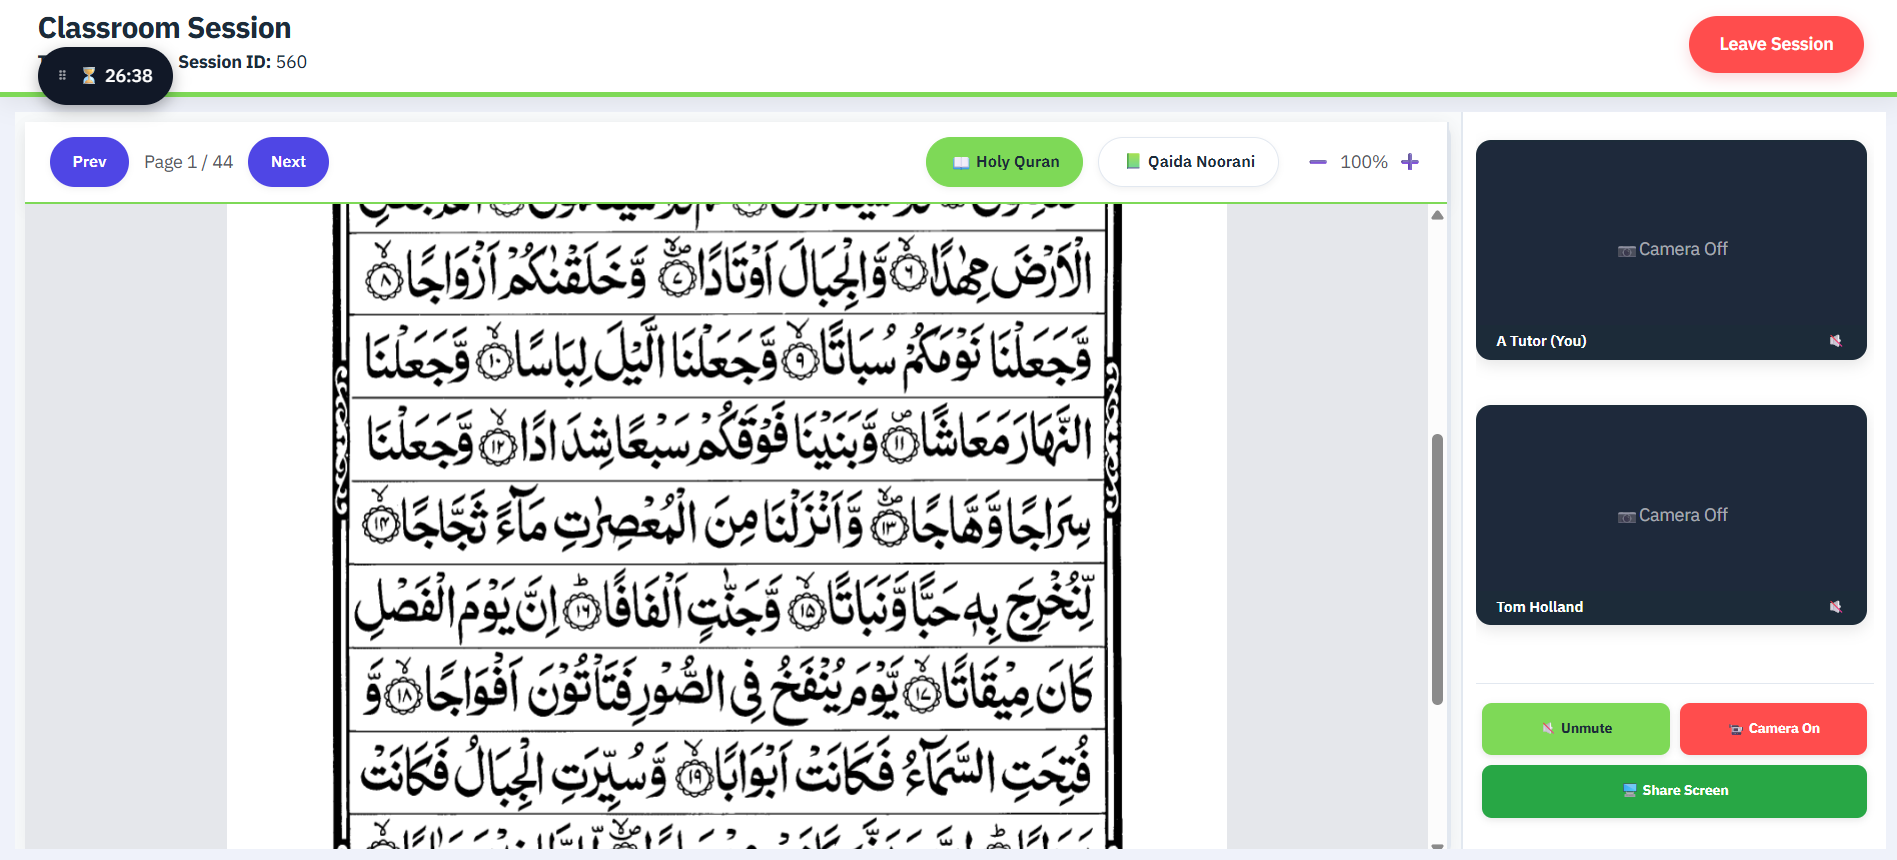 Classroom Session
Session ID: 560
26:38
Leave Session
Prev
Page 1 / 44
Next
Holy Quran
Qaida Noorani
100%
الْاَرْضَ مِهٰدًا ۙ﴿۶﴾ وَّالْجِبَالَ اَوْتَادًا ۪ۙ﴿۷﴾ وَّخَلَقْنٰكُمْ اَزْوَاجًا ۙ﴿۸﴾
وَّجَعَلْنَا نَوْمَكُمْ سُبَاتًا ۙ﴿۹﴾ وَّجَعَلْنَا الَّيْلَ لِبَاسًا ۙ﴿۱۰﴾ وَّجَعَلْنَا
النَّهَارَ مَعَاشًا ۪﴿۱۱﴾ وَّبَنَيْنَا فَوْقَكُمْ سَبْعًا شِدَادًا ۙ﴿۱۲﴾ وَّجَعَلْنَا
سِرَاجًا وَّهَّاجًا ۪ۙ﴿۱۳﴾ وَّاَنْزَلْنَا مِنَ الْمُعْصِرٰتِ مَآءً ثَجَّاجًا ۙ﴿۱۴﴾
لِّنُخْرِجَ بِهٖ حَبًّا وَّنَبَاتًا ۙ﴿۱۵﴾ وَّجَنّٰتٍ اَلْفَافًا ؕ﴿۱۶﴾ اِنَّ يَوْمَ الْفَصْلِ
كَانَ مِيْقَاتًا ۙ﴿۱۷﴾ يَّوْمَ يُنْفَخُ فِى الصُّوْرِ فَتَاْتُوْنَ اَفْوَاجًا ۙ﴿۱۸﴾ وَّ
فُتِحَتِ السَّمَآءُ فَكَانَتْ اَبْوَابًا ۙ﴿۱۹﴾ وَّسُيِّرَتِ الْجِبَالُ فَكَانَتْ
Camera Off
A Tutor (You)
Camera Off
Tom Holland
Unmute
Camera On
Share Screen